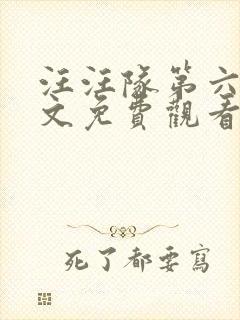 汪汪隊第六
文免費觀看
死了都要寫